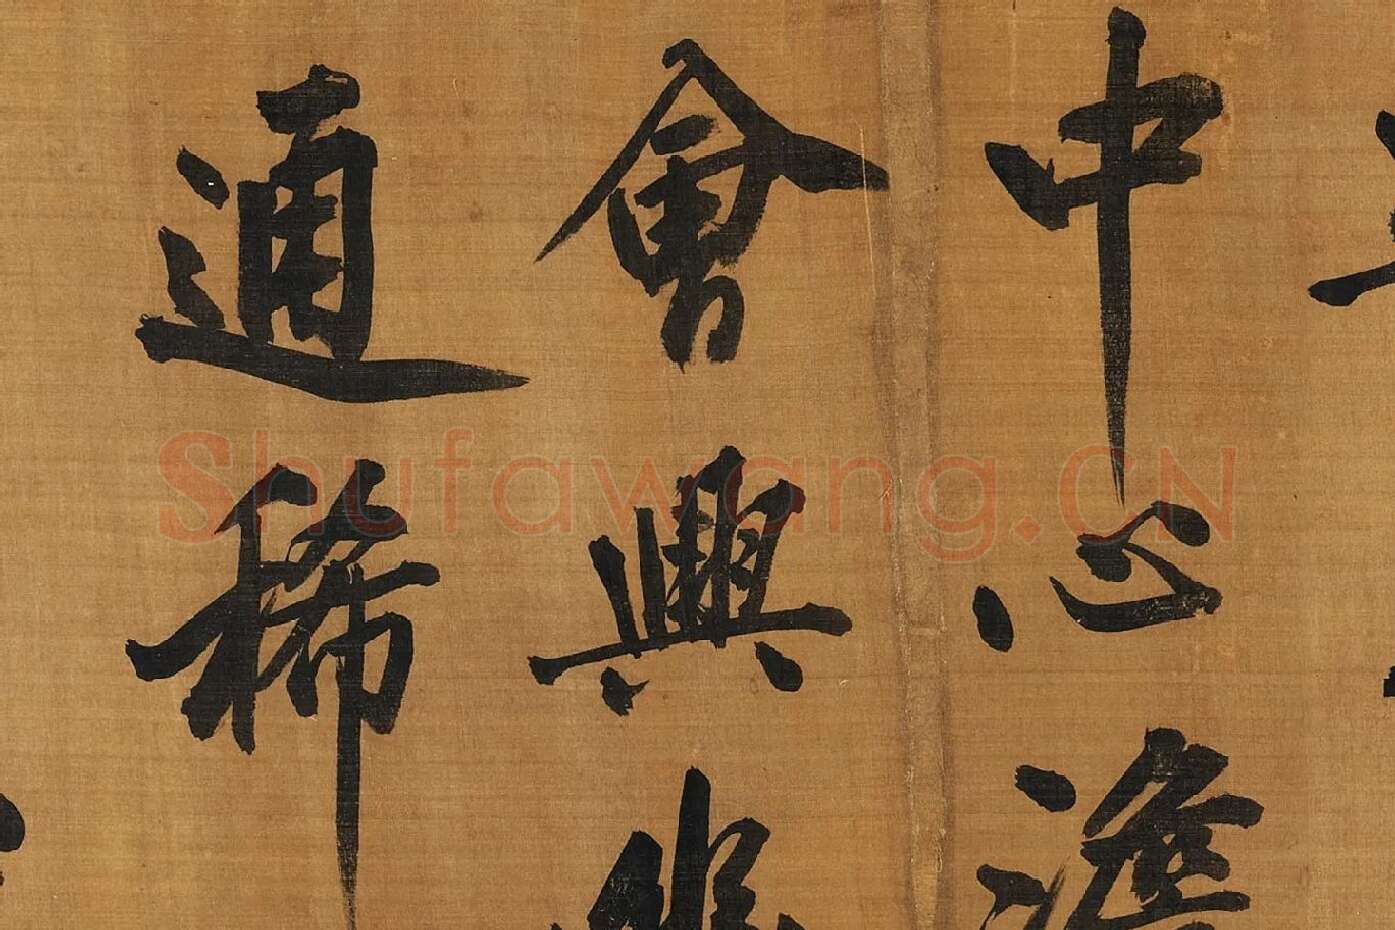 中心澹
會興幽
通稀
Shufawang.CN